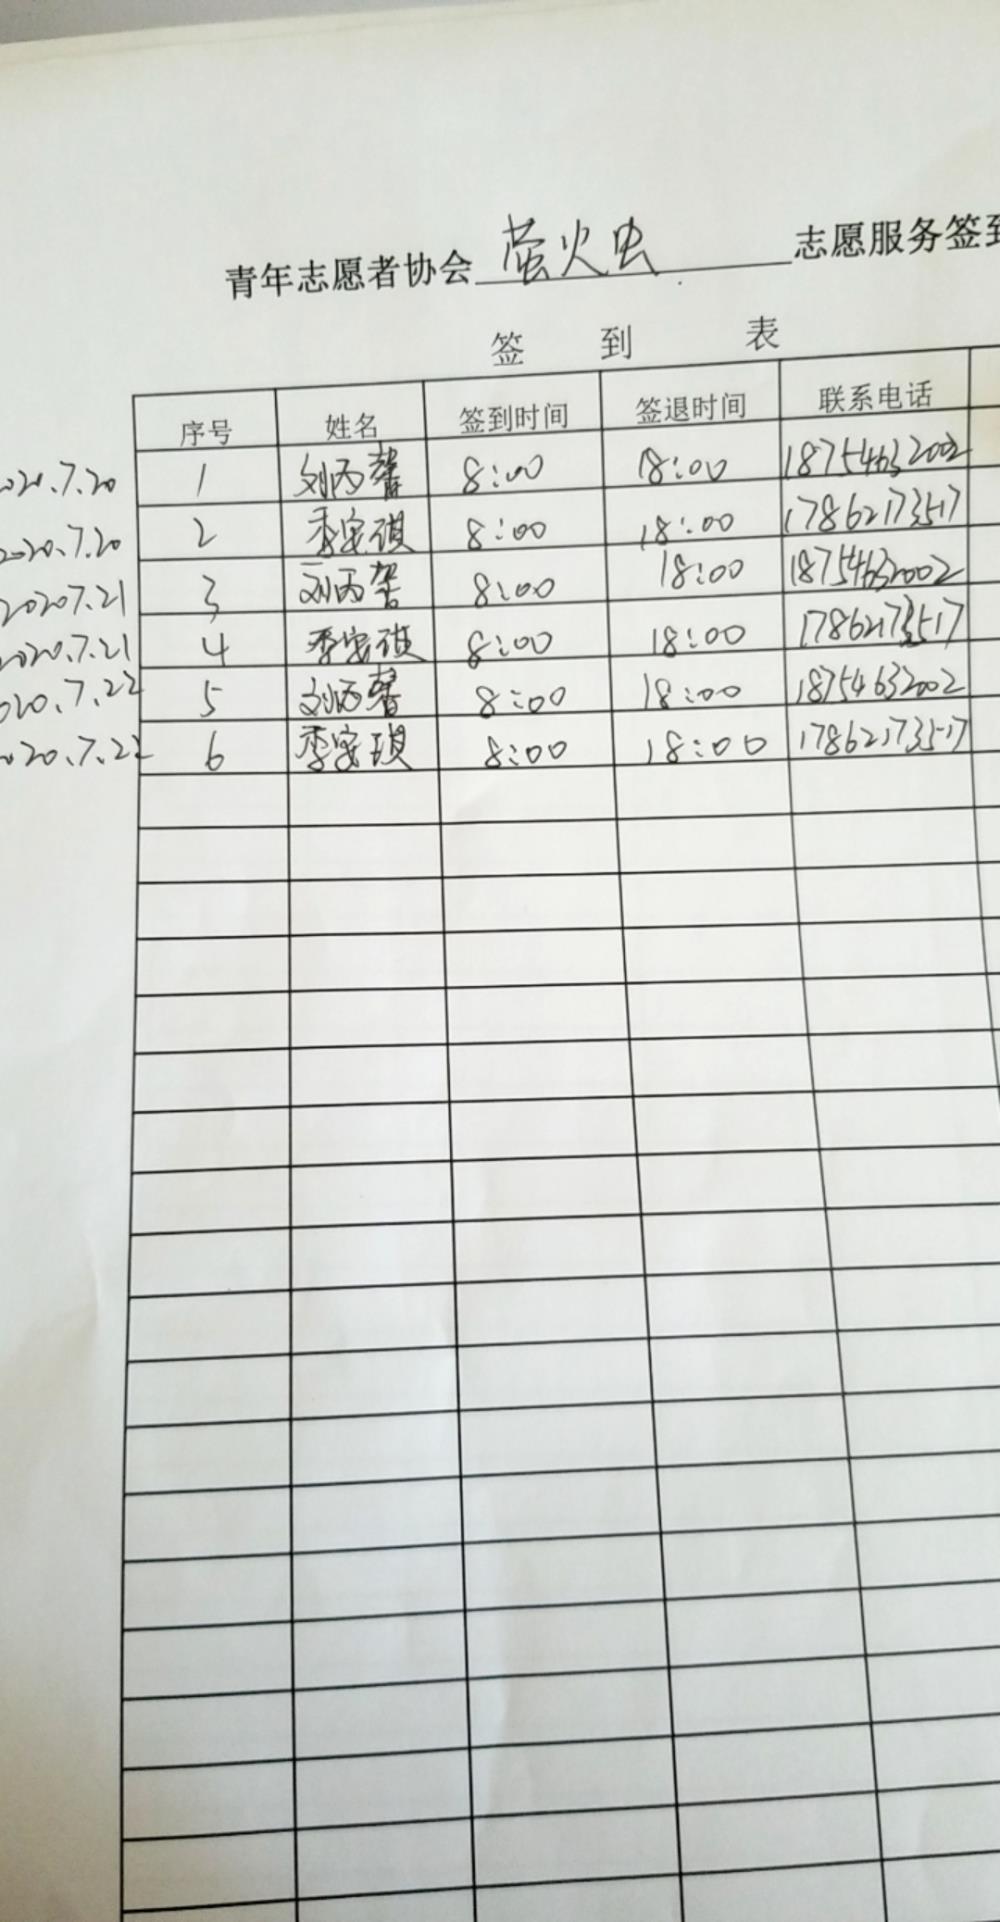 青年志愿者协会 萤火虫 志愿服务签到
签 到 表
序号 姓名 签到时间 签退时间 联系电话
2020.7.20 1 刘丙馨 8:00 18:00 18754632002
2020.7.20 2 季安琪 8:00 18:00 17862173517
2020.7.21 3 刘丙馨 8:00 18:00 18754632002
2020.7.21 4 季安琪 8:00 18:00 17862173517
2020.7.22 5 刘丙馨 8:00 18:00 18754632002
2020.7.22 6 季安琪 8:00 18:00 17862173517